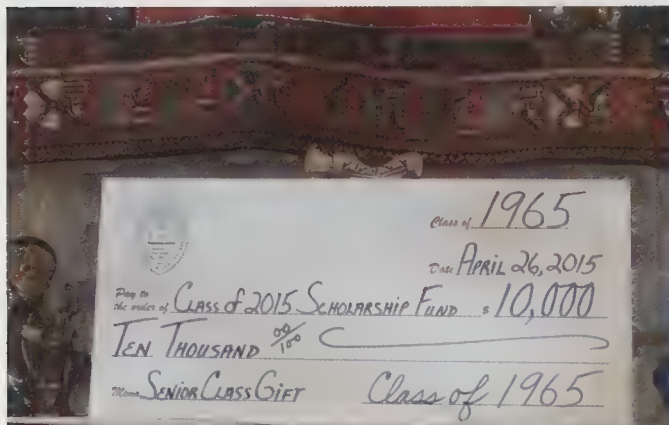 Class of 1965
Date APRIL 26, 2015
Pay to
the order of CLASS of 2015 SCHOLARSHIP FUND $ 10,000
TEN THOUSAND 00/100
Memo SENIOR CLASS GIFT Class of 1965